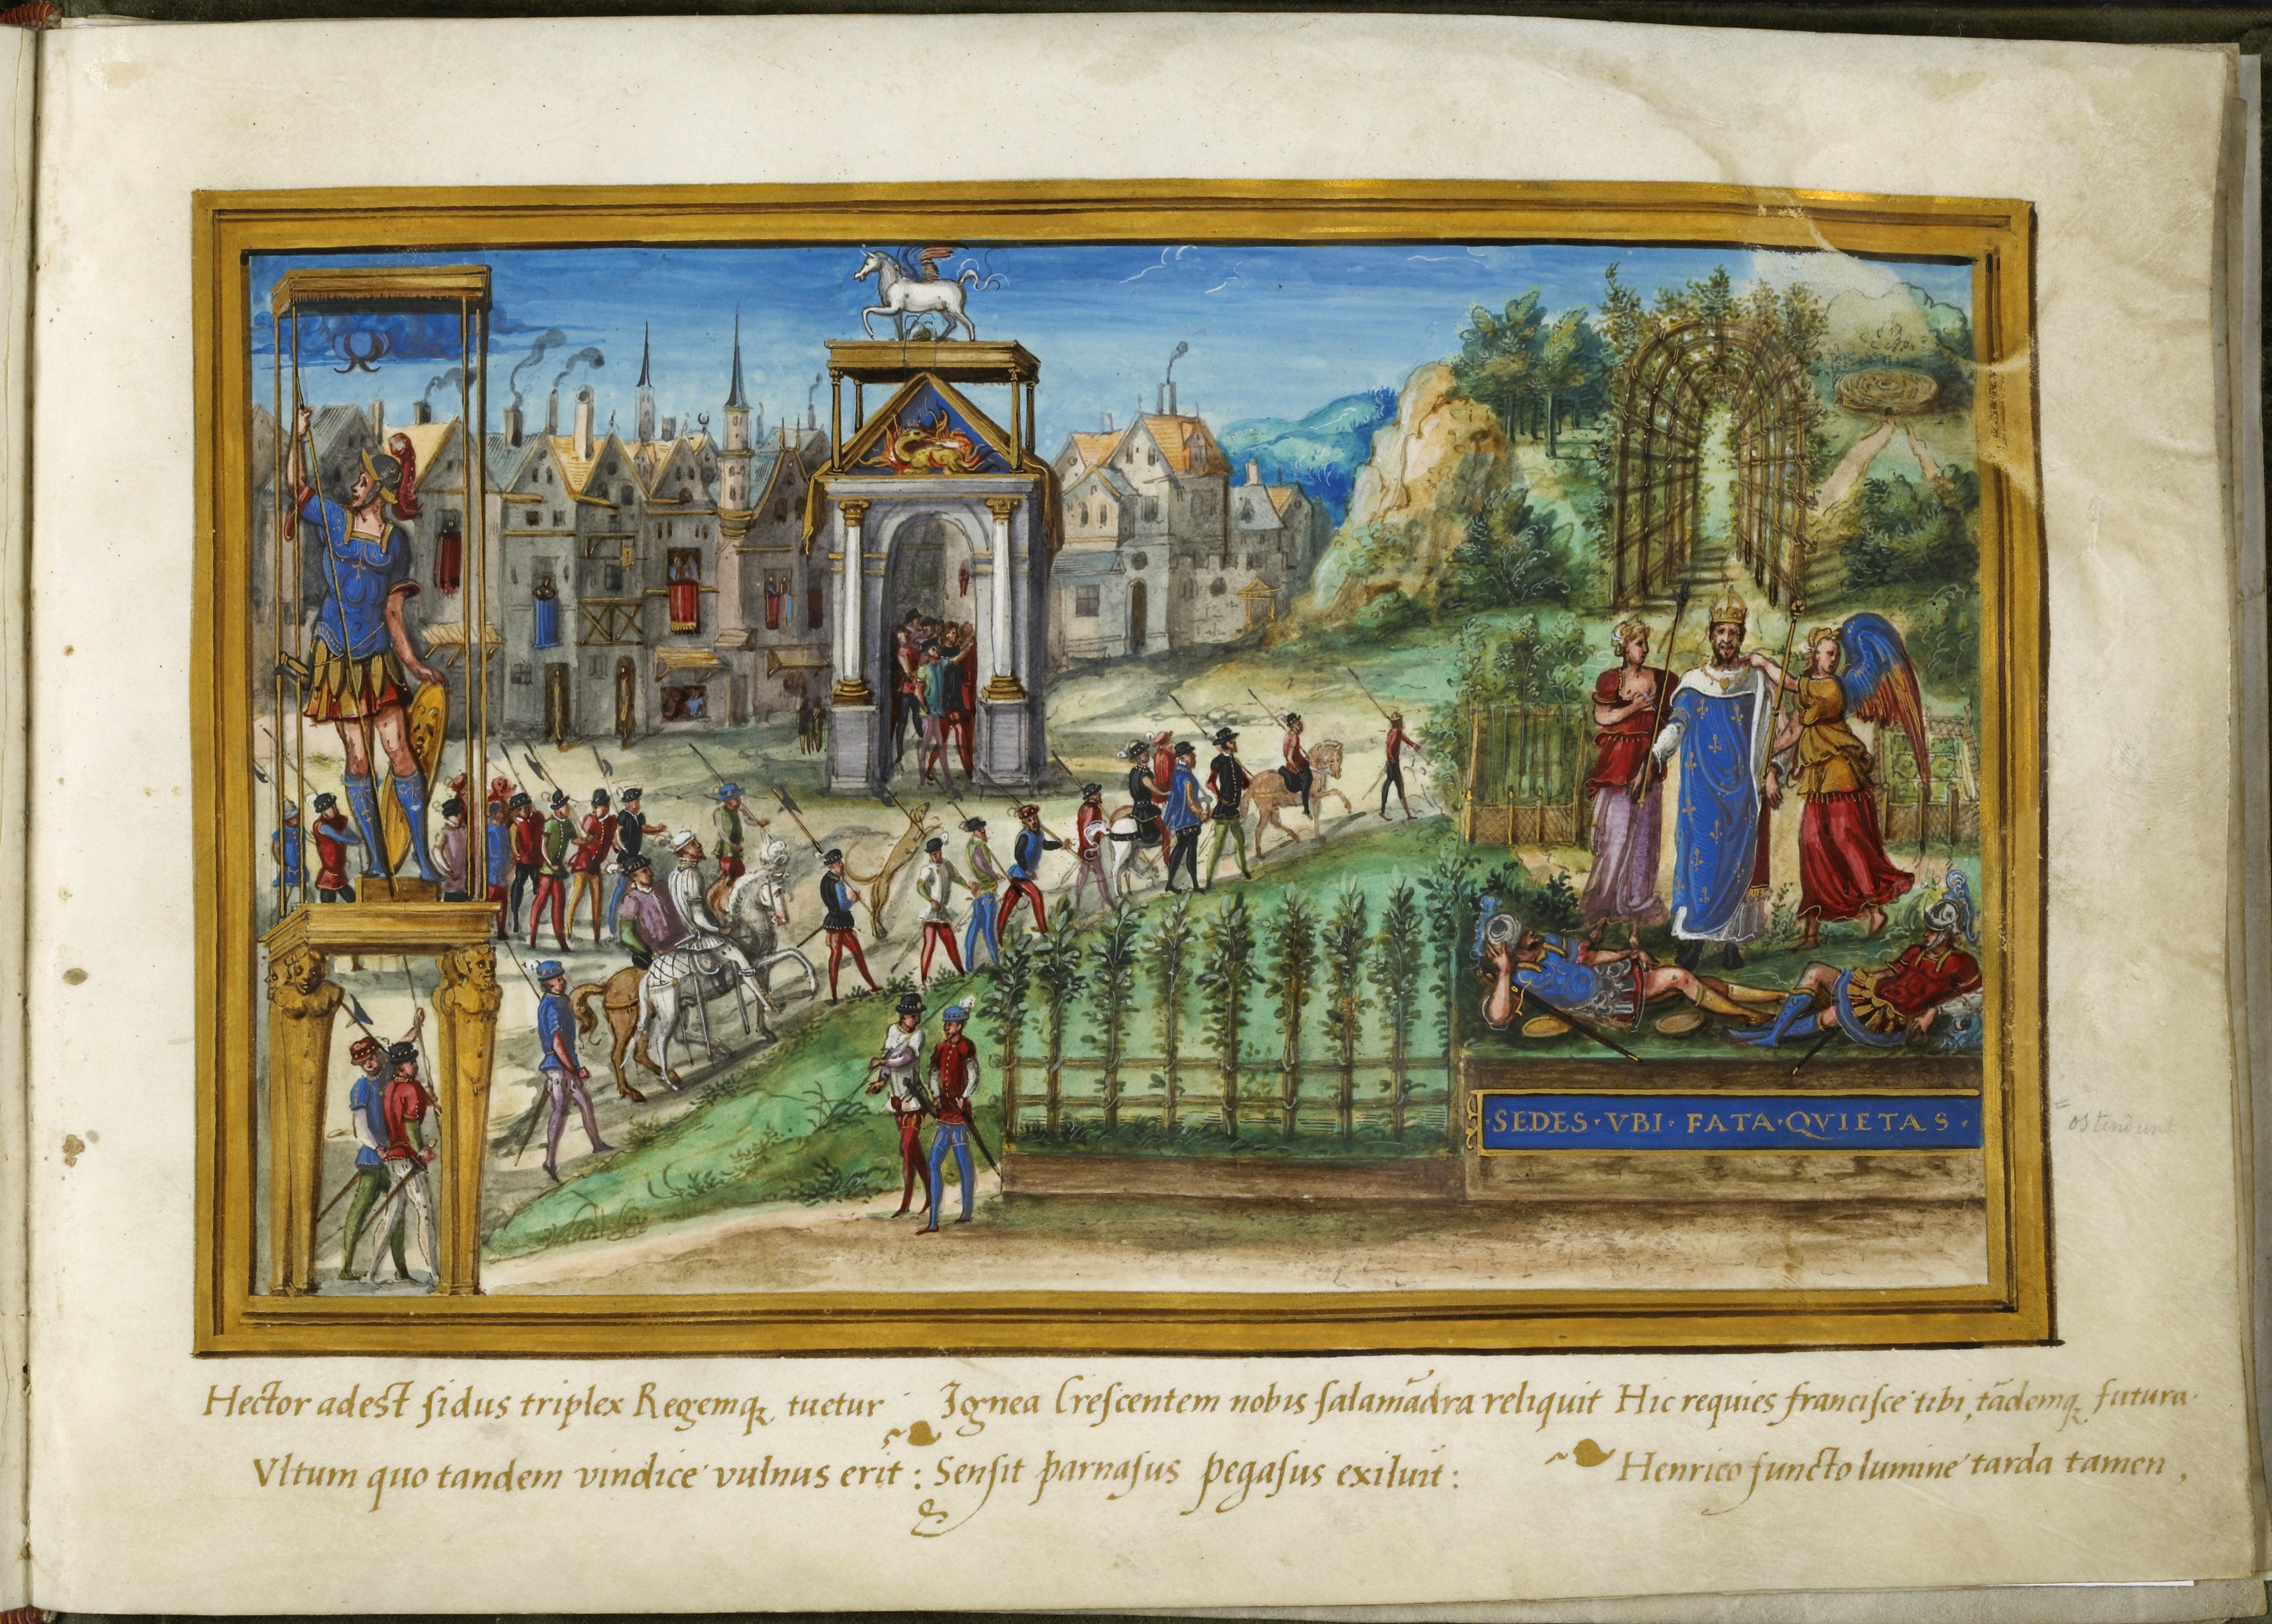 SEDES · VBI · FATA · QVIETAS ·
ostendunt
Hector adest sidus triplex Regemq, tuetur
Vltum quo tandem vindice vulnus erit :
Ignea Crescentem nobis salamādra reliquit
Sensit parnasus pegasus exiluit :
Hic requies francisce tibi, tādemq, futura
Henrico functo lumine tarda tamen ,